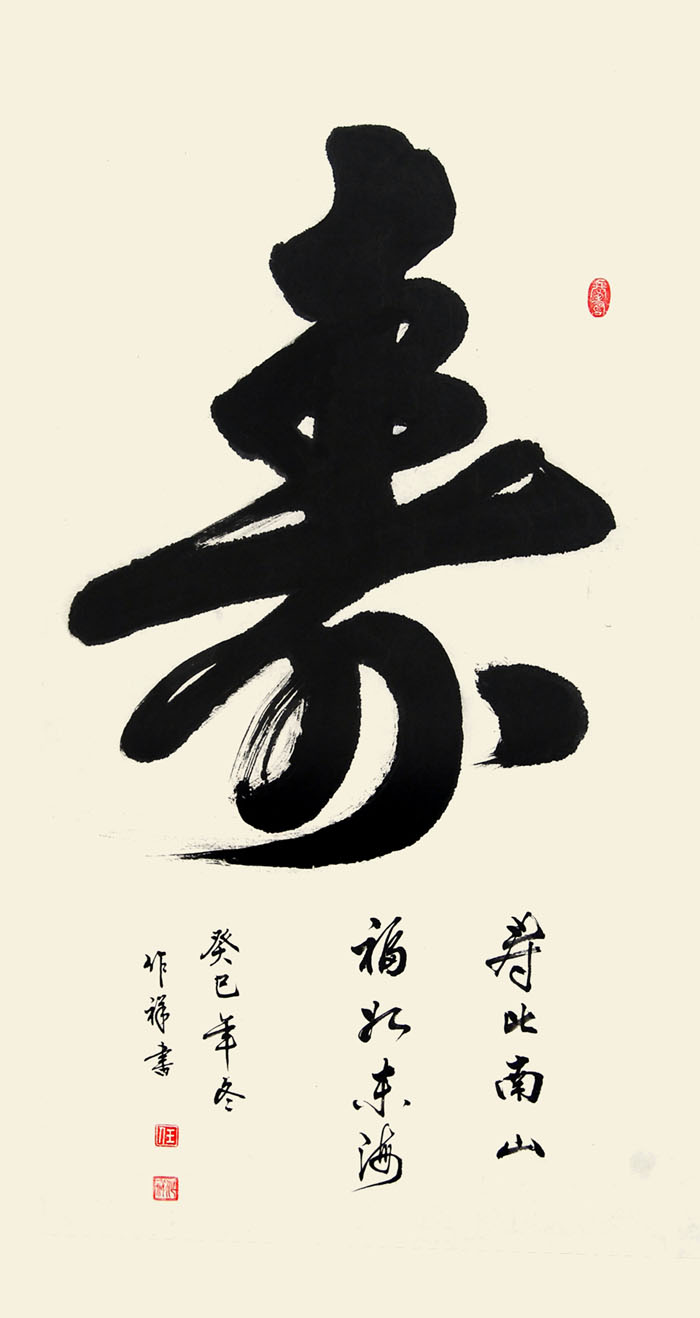 寿
寿比南山
福如东海
癸巳年冬
作祥书